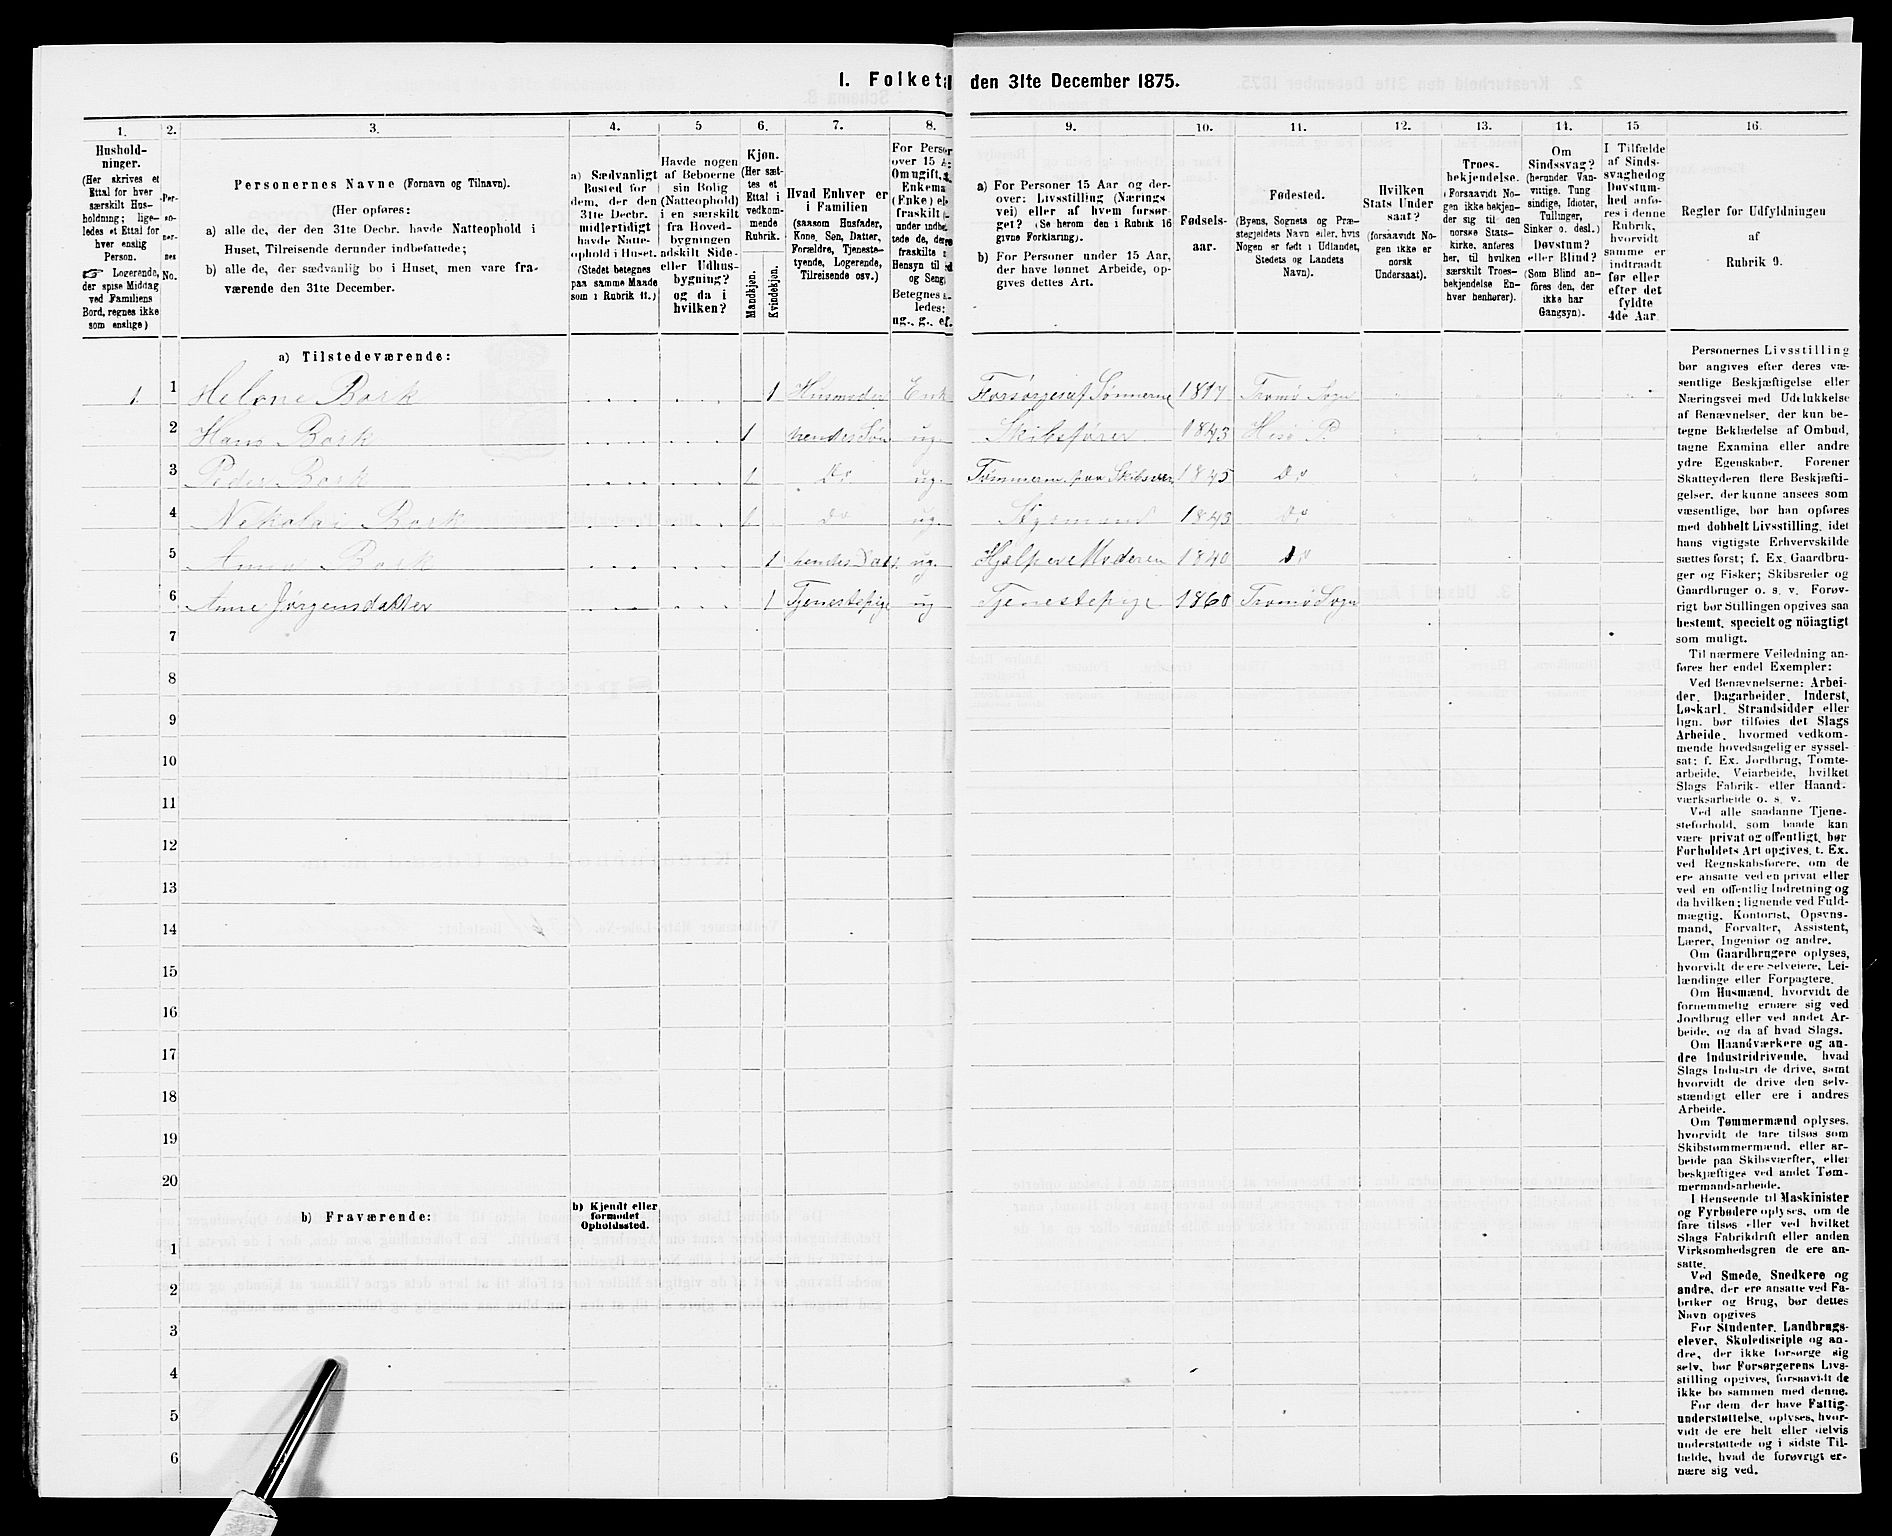 1. Folketæ den 31te December 1875.
1. 2. 3. 4. 5 6. 7. 8. 9. 10. 11. 12. 13. 14. 15 16.
Hushold-
ninger.
(Her skrives et
Ettal for hver
særskilt Hus-
holdning; lige-
ledes et Ettal for
hver enslig
Person.
☞ Logerende,
der spise Middag
ved Familiens
Bord, regnes ikke
som enslige)
Per-
so-
ner-
nes
No.
Personernes Navne (Fornavn og Tilnavn).
(Her opføres:
a) alle de, der den 31te Decbr. havde Natteophold i
Huset, Tilreisende derunder indbefattede;
b) alle de, der sædvanlig bo i Huset, men vare fra-
værende den 31te December.
a) Sædvanligt
Bosted for
dem, der den
31te Decbr.
midlertidigt
havde Natte-
ophold i Huset.
(Stedet betegnes
paa samme Maade
som i Rubrik 11.)
Havde nogen
af Beboerne
sin Bolig
(Natteophold)
i en særskilt
fra Hoved-
bygningen
adskilt Side-
eller Udhus-
bygning?
og da i
hvilken?
Kjøn.
(Her sæt-
tes et
Ettal i
vedkom-
mende
Rubrik.
Mandkjøn.
Kvindekjøn.
Hvad Enhver er
i Familien
(saasom Husfader,
Kone, Søn, Datter,
Forældre, Tjeneste-
tyende, Logerende,
Tilreisende osv.)
For Person
over 15 A
Om ugift, g
Enkema
(Enke) ele
fraskilt
under indbe
tede de, der
fraskilte
Hensyn til
og Seng
Betegnes
ledes:
ug., g., e
a) For Personer 15 Aar og der-
over: Livsstilling (Nærings
vei) eller af hvem forsør-
get? (Se herom den i Rubrik 16
givne Forklaring).
b) For Personer under 15 Aar,
der have lønnet Arbeide, op-
gives dettes Art.
Fødsels-
aar.
Fødested.
(Byens, Sognets og Præ-
stegjeldets Navn eller, hvis
Nogen er født i Udlandet,
Stedets og Landets
Navn).
Hvilken
Stats Under
saat?
(forsaavidt No-
gen ikke er
norsk
Undersaat).
Troes-
bekjendelse.
(Forsaavidt No-
gen ikke bekjen-
der sig til den
norske Stats-
kirke, anføres
her, til hvilken
særskilt Troes-
bekjendelse En-
hver henhører).
Om
Sindssvag?
(herunder Van-
vittige, Tung
sindige, Idioter,
Tullinger,
Sinker o. desl.)
Døvstum?
eller Blind?
(Som Blind an-
føres den, der
ikke har
Gangsyn).
I Tilfælde
af Sinds-
svaghedog
Døvstum-
hed anfø-
res i denne
Rubrik,
hvorvidt
samme er
indtraadt
før eller
efter det
fyldte
4de Aar.
Regler for Udfyldningen
af
Rubrik 9.
a) Tilstedeværende:
1 1 Helene Bork 1 Husmoder Enk Forsørges af Sønnerne 1817 Tromø Sogn
2 Hans Bork 1 hendes Søn ug. Skibsfører 1843 Hisø P.
3 Peder Bork 1 Do ug. Tømmerm. paa Skibsvær 1845 Do
4 Nikolai Bork 1 Do ug. Stymand 1843 Do
5 Anna Bork 1 hendes Datt. ug. Hjælper Moderen 1840 Do
6 Anne Jørgensdatter 1 Tjenestepige ug Tjenestepige 1860 Tromø Sogn
7
8
9
10
11
12
13
14
15
16
17
18
19
20
b) Fraværende:
b) Kjendt eller
formodet
Opholdssted.
1
2
3
4
5
6
Personernes Livsstilling
bør angives efter deres væ-
sentlige Beskjæftigelse eller
Næringsvei med Udelukkelse
af Benævnelser, der kun be-
tegne Beklædelse af Ombud,
tagne Examina eller andre
ydre Egenskaber. Forener
Skatteyderen flere Beskjæfti-
gelser, der kunne ansees som
væsentlige, bør han opføres
med dobbelt Livsstilling, idet
hans vigtigste Erhvervskilde
sættes først; f. Ex. Gaardbru-
ger og Fisker; Skibsreder og
Gaardbruger o. s. v. Forøv-
rigt bør Stillingen opgives saa
bestemt, specielt og nöiagtigt
som muligt.
Til nærmere Veiledning an-
føres her endel Exempler:
Ved Benævnelserne: Arbei-
der, Dagarbeider, Inderst,
Løskarl, Strandsidder eller
lign. bør tilføies det Slags
Arbeide, hvormed vedkom-
mende hovedsagelig er syssel-
sat; f. Ex. Jordbrug, Tomte-
arbeide, Veiarbeide, hvilket
Slags Fabrik- eller Haand-
værksarbeide o. s. v.
Ved alle saadanne Tjene-
steforhold, som baade kan
være privat og offentligt, bør
Forholdets Art opgives, t. Ex.
ved Regnskabsførere, om de
ere ansatte ved en privat eller
ved en offentlig Indretning og
da hvilken; lignende ved Fuld-
mægtig, Kontorist, Opsyns-
mand, Forvalter, Assistent,
Lærer, Ingeniør og andre.
Om Gaardbrugere oplyses,
hvorvidt de ere Selveiere, Lei-
lændinge eller Forpagtere.
Om Husmænd, hvorvidt de
fornemmelig ernære sig ved
Jordbrug eller ved andet Ar-
beide, og da af hvad Slags.
Om Haandværkere og an-
dre Industridrivende, hvad
Slags Industri de drive, samt
hvorvidt de drive den selv-
stændigt eller ere i andres
Arbeide.
Om Tømmermænd oplyses,
hvorvidt de fare tilsøs som
Skibstømmermænd, eller ar-
beide paa Skibsværfter, eller
beskjæftiges ved andet Tøm-
mermandsarbeide.
I Henseende til Maskinister
og Fyrbødere oplyses, om de
fare tilsøs eller ved hvilket
Slags Fabrikdrift eller anden
Virksomhedsgren de ere an-
satte.
Ved Smede, Snedkere og
andre, der ere ansatte ved Fa-
briker og Brug, bør dettes
Navn opgives
For Studenter, Landbrugs-
elever, Skoledisciple og an-
dre, der ikke forsørge sig
selv, bør Forsørgerens Livs-
stilling opgives, forsaavidt de
ikke bo sammen med denne.
For dem, der have Fattig-
understøttelse, oplyses, hvor-
vidt de ere helt eller delvis
understøttede og i sidste Til-
fælde, hvad de forøvrigt er-
nære sig ved.